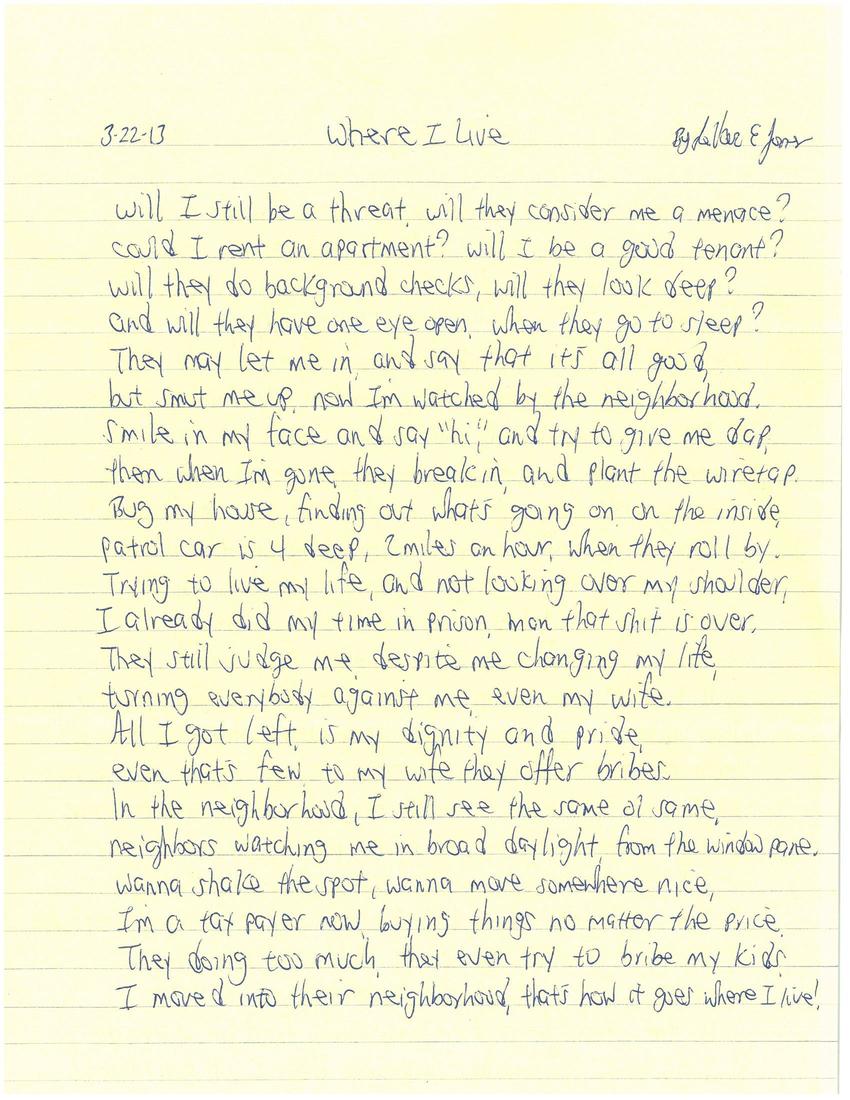 3-22-13 Where I Live By LaVar E Jones
will I still be a threat, will they consider me a menace?
could I rent an apartment? will I be a good tenant?
will they do background checks, will they look deep?
and will they have one eye open, when they go to sleep?
They may let me in, and say that it's all good,
but smut me up, now I'm watched by the neighborhood.
Smile in my face and say "hi," and try to give me dap,
then when I'm gone, they break in, and plant the wiretap.
Bug my house, finding out what's going on, on the inside,
patrol car is 4 deep, 2 miles an hour, when they roll by.
Trying to live my life, and not looking over my shoulder,
I already did my time in prison, man that shit is over.
They still judge me, despite me changing my life,
turning everybody against me, even my wife.
All I got left, is my dignity and pride,
even that's few, to my wife they offer bribes.
In the neighborhood, I still see the same ol same,
neighbors watching me in broad daylight, from the window pane.
wanna shake the spot, wanna move somewhere nice,
I'm a tax payer now, buying things no matter the price.
They doing too much, they even try to bribe my kids
I moved into their neighborhood, that's how it goes where I live!